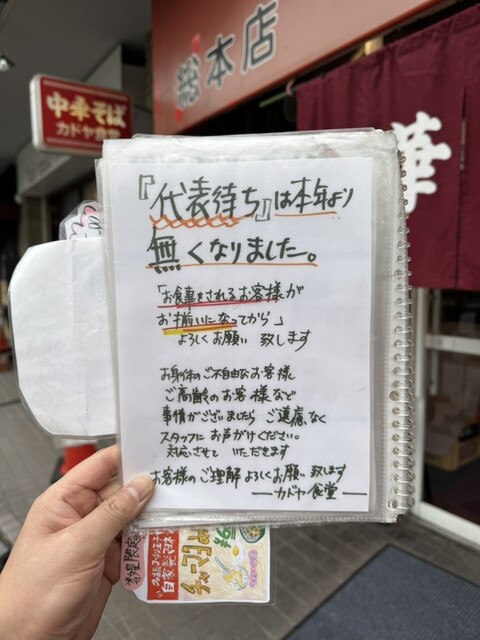 総本店
中華そば
カドヤ食堂
華
『代表待ち』は本年より
無くなりました。
「お食事をされるお客様が
お揃いになってから」
よろしくお願い致します
お身体のご不自由なお客様
ご高齢のお客様など
事情がございましたらご遠慮なく
スタッフにお声がけください。
対応させていただきます
お客様のご理解よろしくお願い致します
ーカドヤ食堂ー
自家製